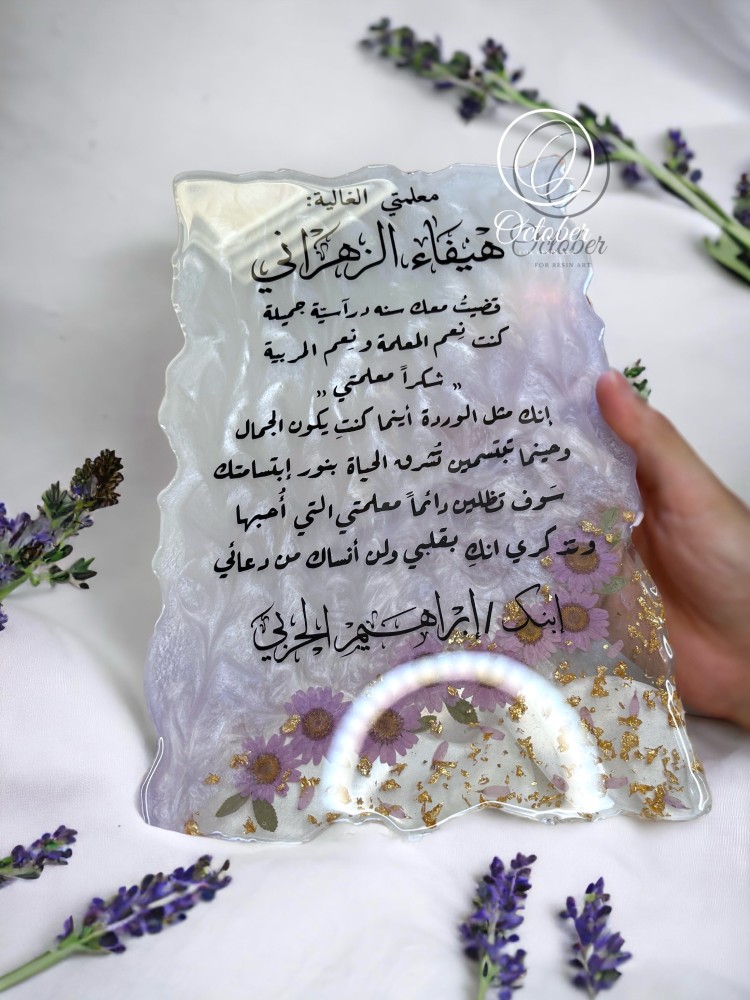 معلمتي الغالية:
هَيْفَاء الزهرَاني
قضيتُ معك سنه درآسيّة جميلة
كنت نِعم المعلمة و نِعم المربية
,, شكراً معلمتي ,,
إنك مثل الوردة أينما كنتِ يكون الجمال
وحينما تبتسمين تُشرق الحياة بنور إبتسامتك
سَوف تظلين دائماً معلمتي التي أُحبها
وتذكري انكِ بقلبي ولن أنساك من دعائي
إبنك / إبراهيم الحربي
October
October
FOR RESIN ART